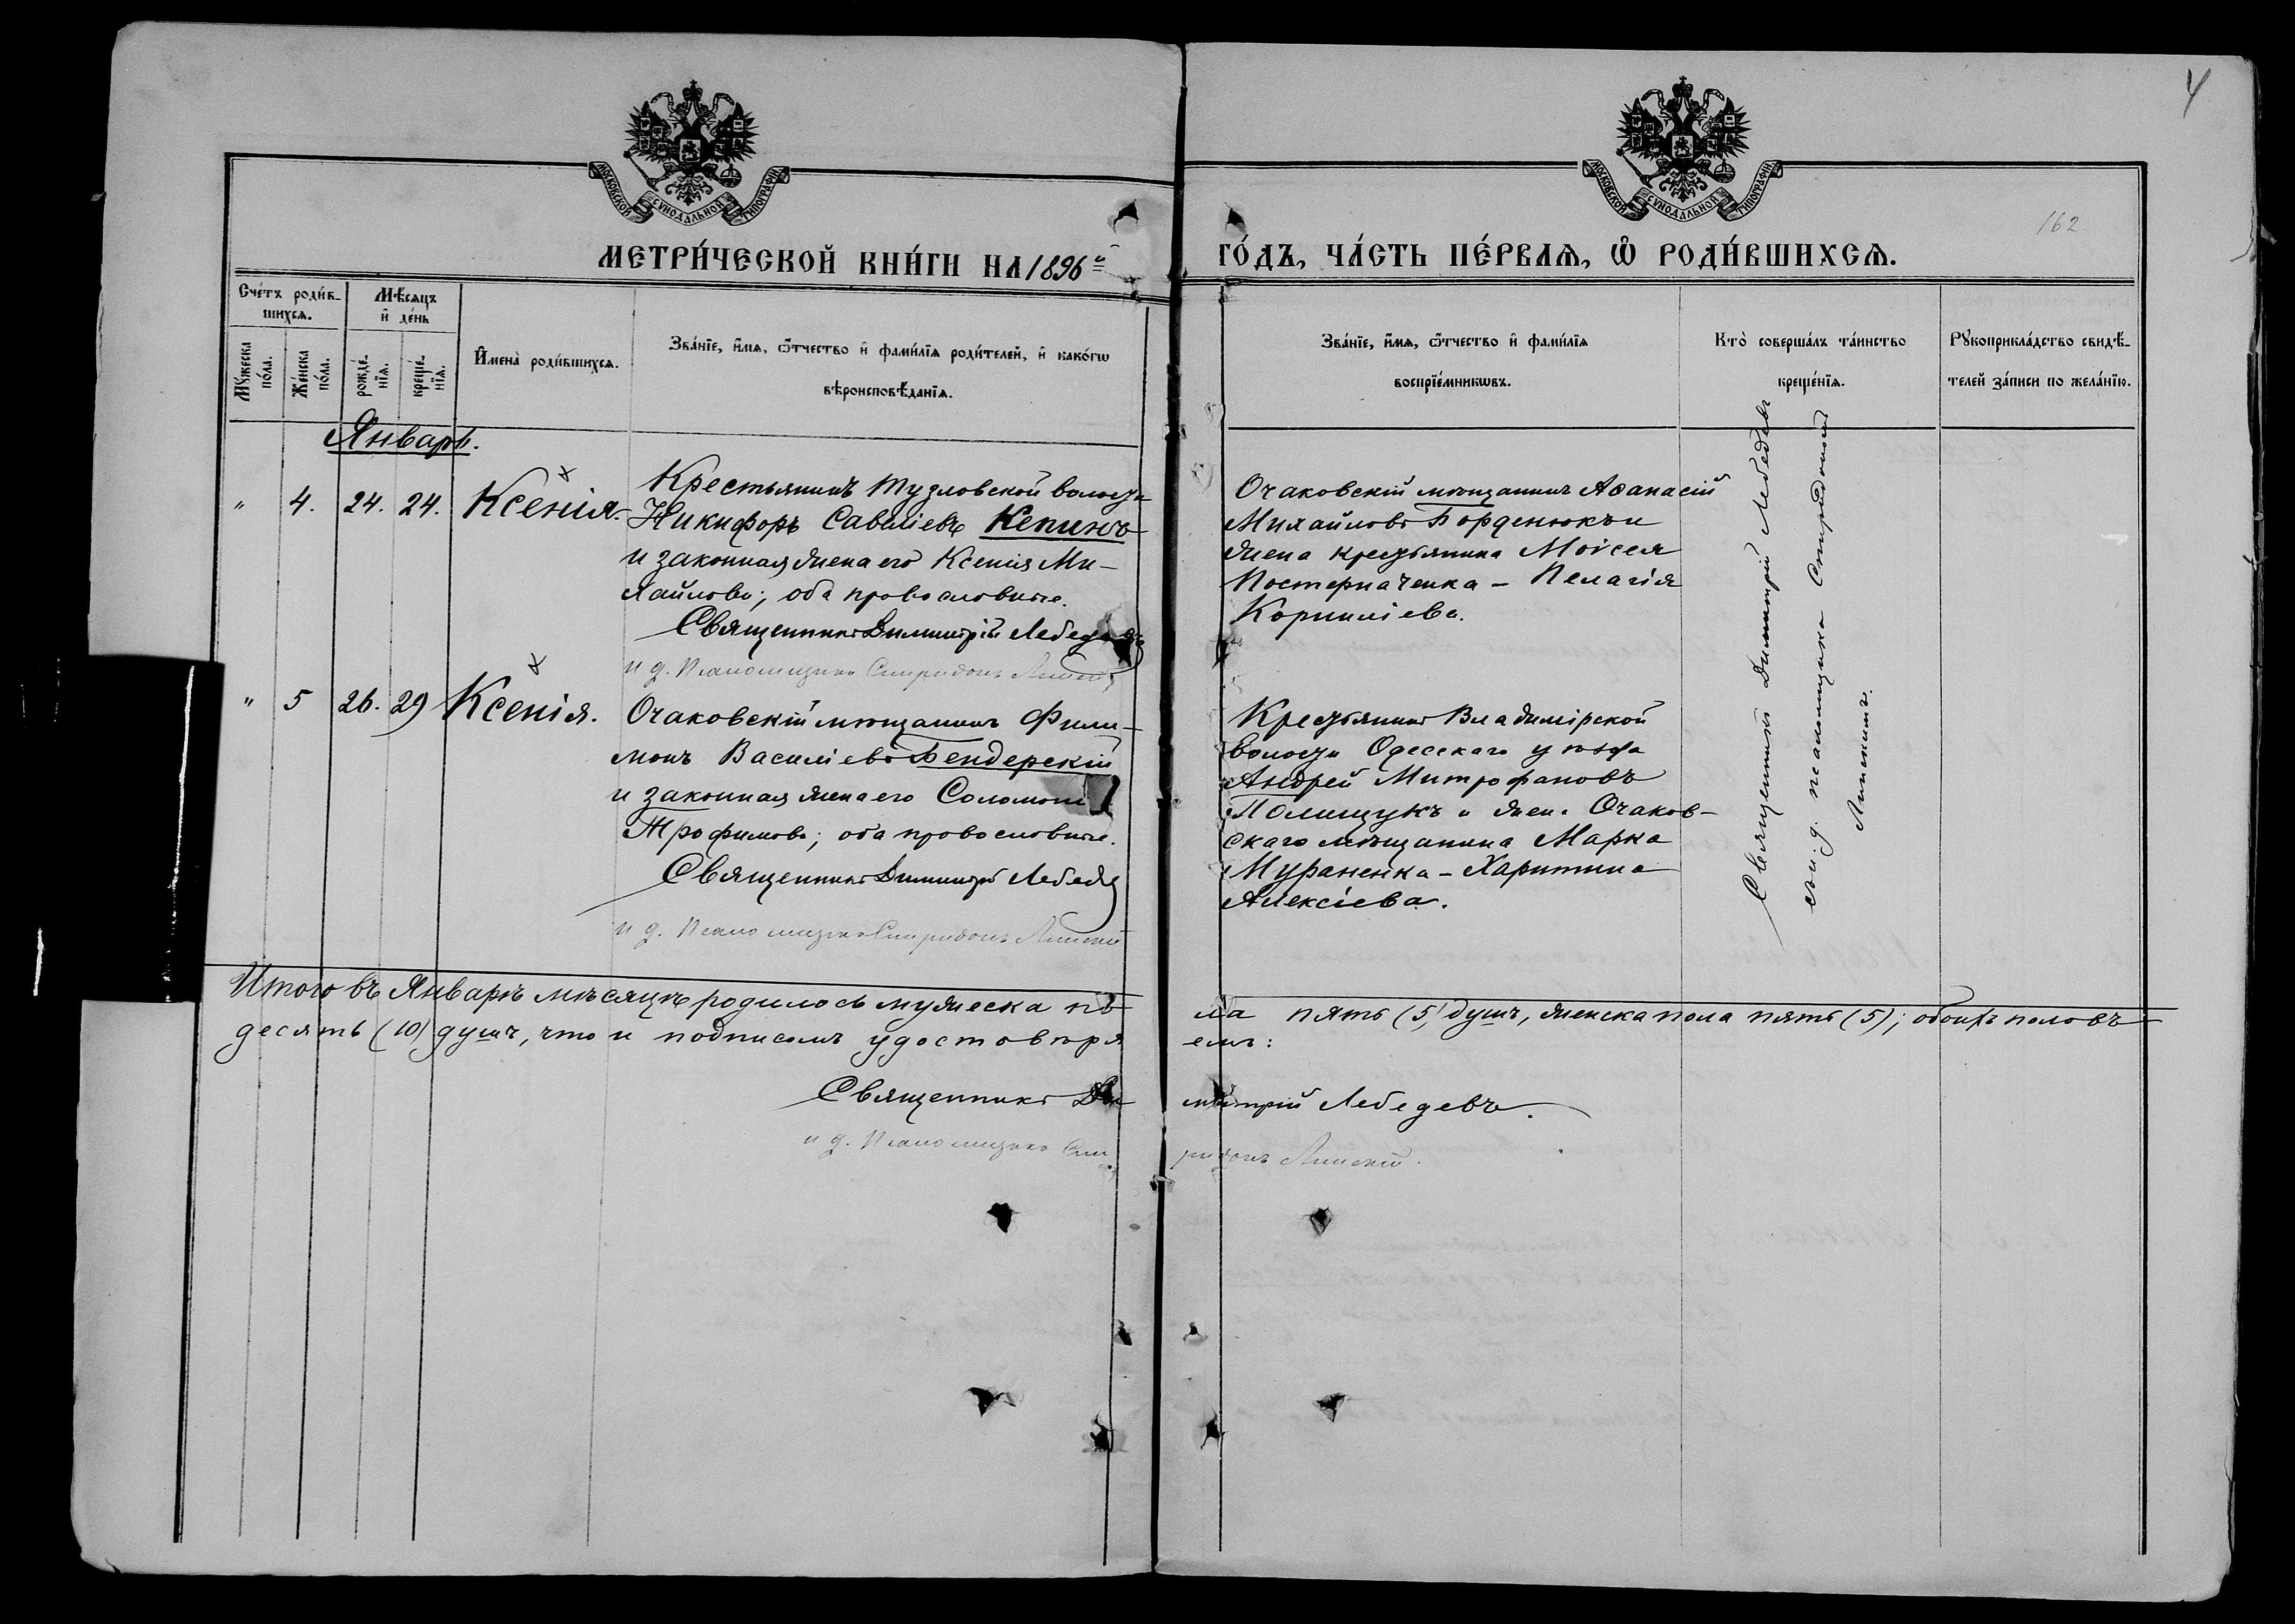 4
МОСКОВСКОЙ СѴНОДАЛЬНОЙ ТИПОГРАФІИ
МОСКОВСКОЙ СѴНОДАЛЬНОЙ ТИПОГРАФІИ
162
МЕТРИ́ЧЕСКОЙ КНИ́ГИ НА 1896й
ГО́ДЪ, ЧА́СТЬ ПЕ́РВАѦ, Ѽ РОДИ́ВШИХСѦ.
Сче́тъ роди́в-
шихсѧ.
Мѣ́сѧцъ
и҆ де́нь
Мꙋ́жеска
по́ла.
Же́нска
по́ла.
рожде́-
нїѧ.
креще́-
нїѧ.
И҆мена̀ роди́вшихсѧ.
Зва́нїе, и҆́мѧ, ѻ҆́тчество и҆ фами́лїѧ роди́телей, и҆ како́гѡ
вѣроисповѣ́данїѧ.
Зва́нїе, и҆́мѧ, ѻ҆́тчество и҆ фами́лїѧ
воспрїе́мникѡвъ.
Кто̀ соверша́лъ та́инство
креще́нїѧ.
Рꙋкоприкла́дство свидѣ́-
телей за́писи по жела́нїю.
Январь.
" 4. 24. 24. Ксенія.
Крестьянинъ Тузловской волости
Никифоръ Савеліевъ Кепинъ
и законная жена его Ксенія Ми-
хайлова; оба православные.
Священникъ Димитрій Лебедевъ
и д. Псаломщика Спиридонъ Липскій
Очаковскій мѣщанинъ Аѳанасій
Михайловъ Борденюкъ и
жена крестьянина Моисея
Постерначенка – Пелагія
Корниліева.
" 5 26. 29 Ксенія.
Очаковскій мѣщанинъ Фили-
монъ Василіевъ Бендерскій
и законная жена его Соломонія
Трофимова; оба православные.
Священникъ Димитрій Лебедев
и д. Псаломщика Спиридонъ Липскій
Крестьянинъ Владимірской
волости Одесскаго уѣзда
Андрей Митрофановъ
Полищукъ и жена Очаков-
скаго мѣщанина Марка
Мураненка – Харитина
Алексіева.
Священникъ Димитрій Лебедевъ
съ и. д. псаломщика Спиридономъ
Липскимъ.
Итого въ Январѣ мѣсяцѣ родилось мужеска по-
ла пять (5) душъ, женска пола пять (5); обоихъ половъ
десять (10) душъ, что и подписомъ удостовѣря
емъ:
Священникъ Ди
митрій Лебедевъ.
и д. Псаломщика Спи
ридонъ Липскій.